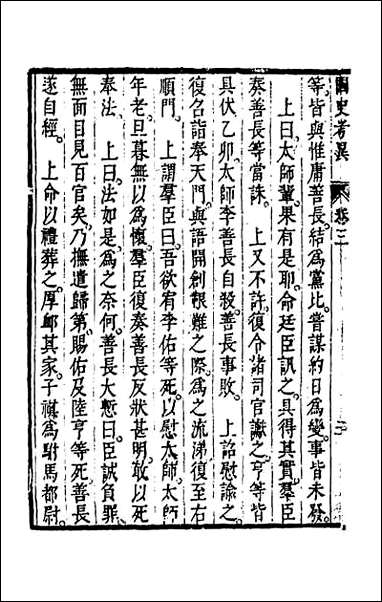 國史考異 卷三
等皆與惟庸善長結爲黨比嘗謀約日爲變事皆未發
上曰太師輩果有是耶命廷臣訊之具得其實羣臣
奏善長等當誅 上又不許復令諸司官讞之亨等皆
具伏乙卯太師李善長自殺善長事敗 上詔慰諭之
復召詣奉天門與語開創艱難之際爲之流涕復至右
順門 上謂羣臣曰吾欲宥李佑等死以慰太師太師
年老旦暮無以爲懷羣臣復奏善長反狀甚明敢以死
奉法 上曰法如是爲之奈何善長大慙曰臣誠負罪
無面目見百官矣乃撫遣歸第賜佑及陸亨等死善長
遂自經 上命以禮葬之厚䘏其家子祺爲駙馬都尉